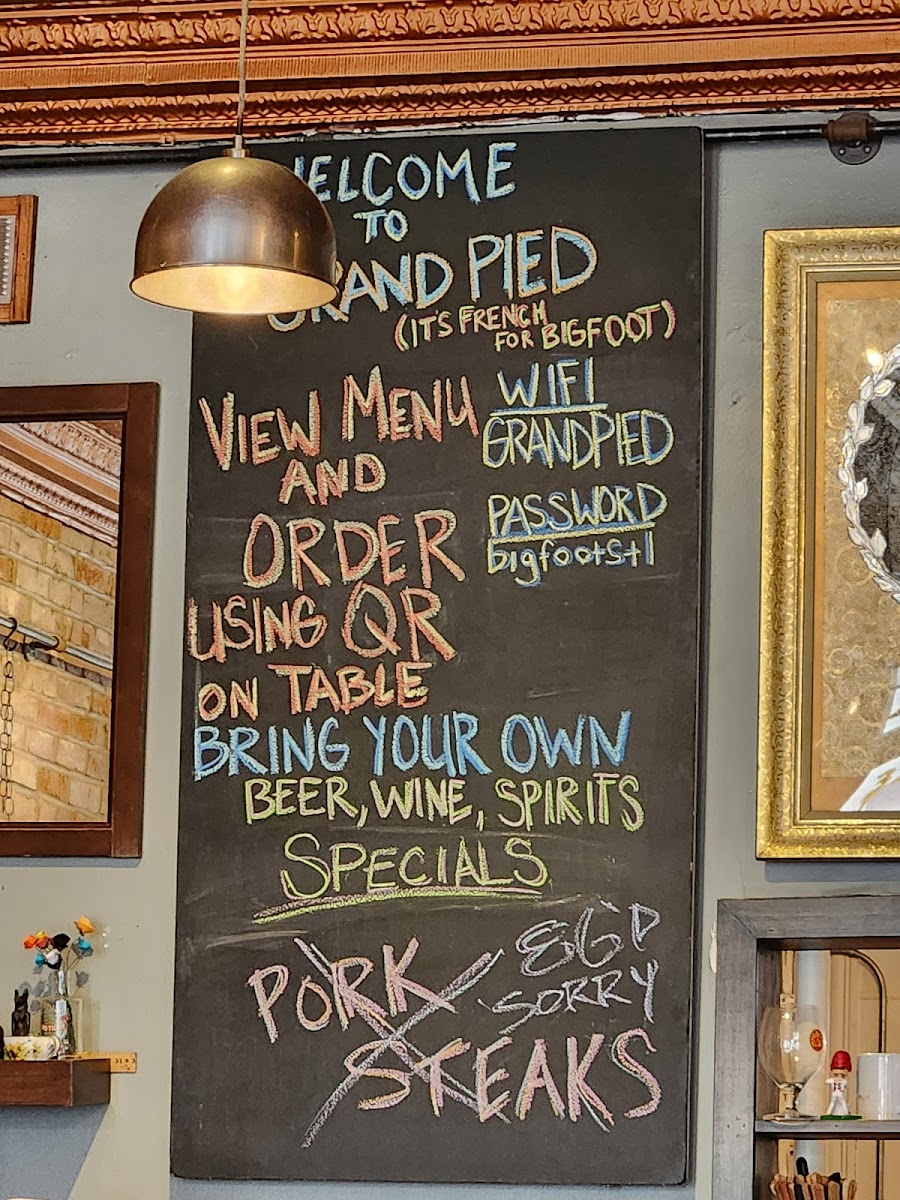 WELCOME
TO
GRAND PIED
(IT'S FRENCH
FOR BIGFOOT)
VIEW MENU
AND
ORDER
USING QR
ON TABLE
WIFI
GRANDPIED
PASSWORD
bigfootstl
BRING YOUR OWN
BEER, WINE, SPIRITS
SPECIALS
PORK
STEAKS
86'D
SORRY